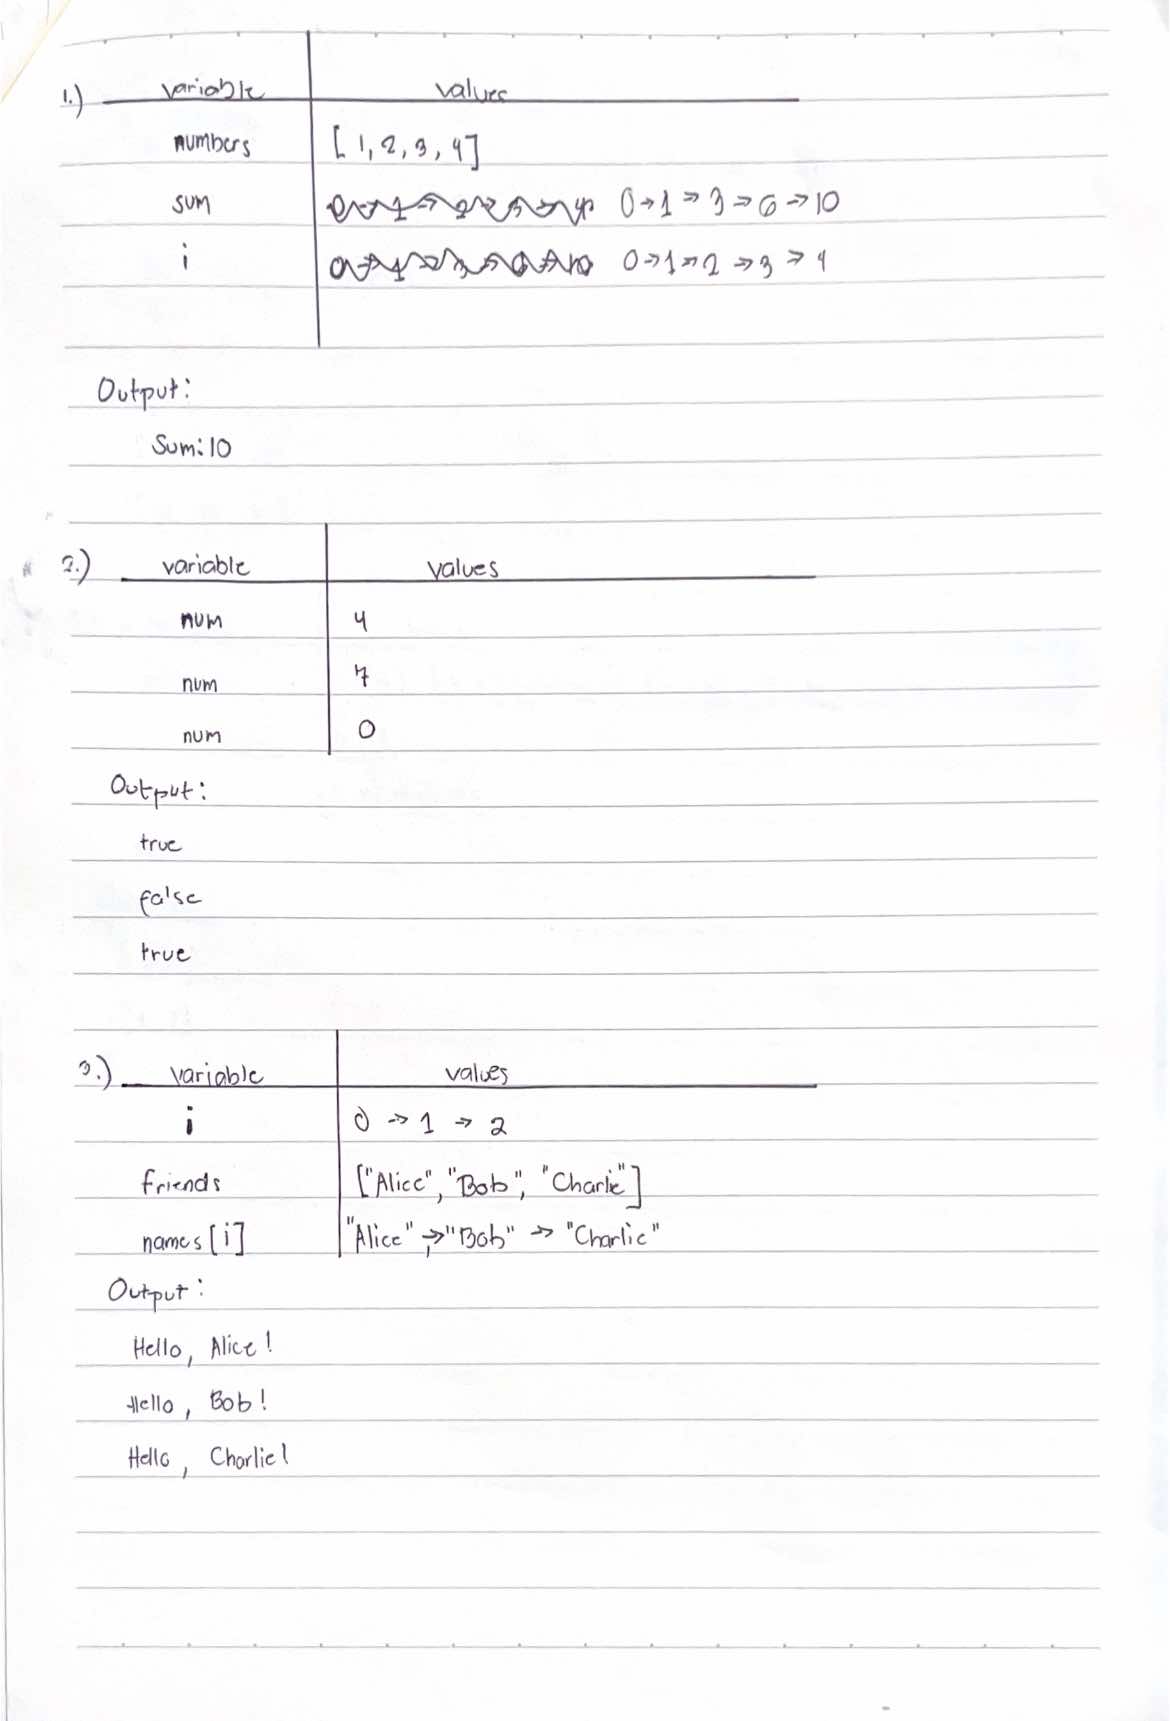 1.) variable values
numbers [1, 2, 3, 4]
sum 0→1→3→6→10
i 0→1→2→3→4
Output:
Sum:10
2.) variable values
num 4
num 7
num 0
Output:
true
false
true
3.) variable values
i 0→1→2
friends ["Alice", "Bob", "Charlie"]
names[i] "Alice"→"Bob"→"Charlie"
Output:
Hello, Alice!
Hello, Bob!
Hello, Charlie!